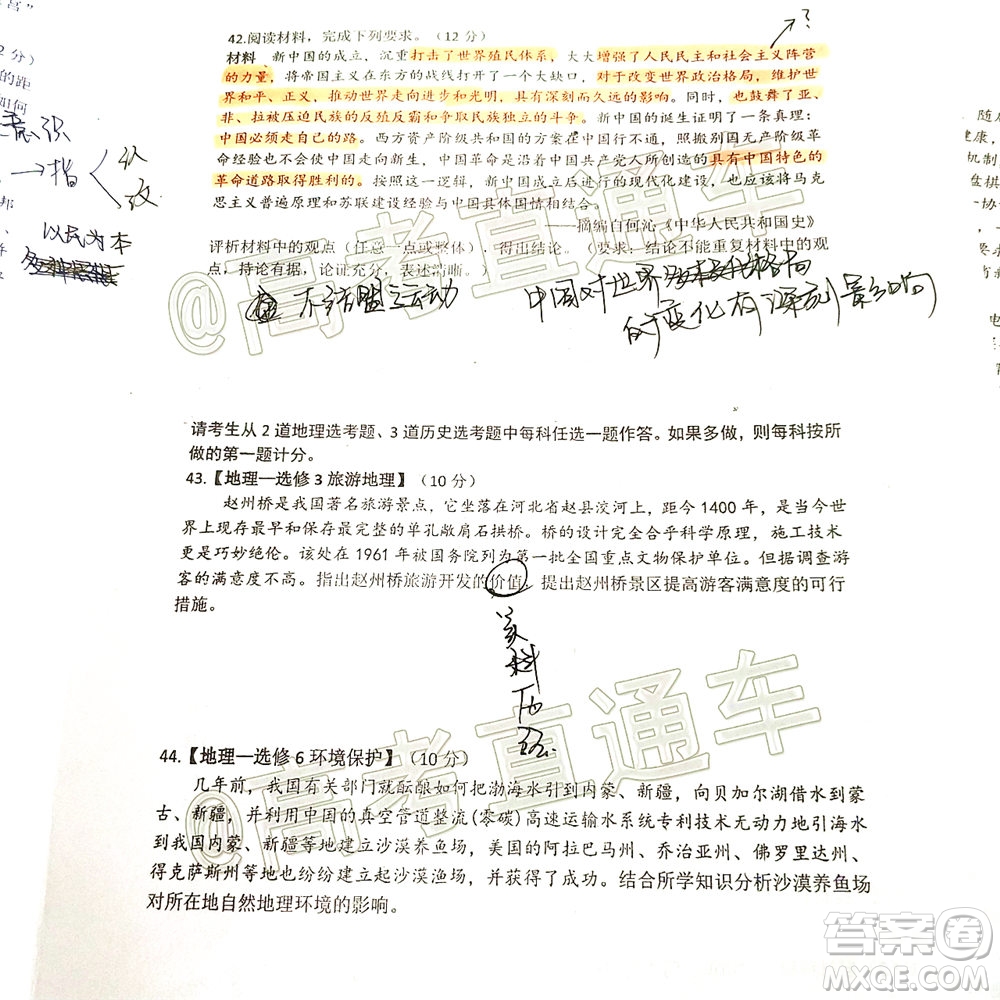 2分）
的距
如何
意识
→指
以民为本
邦
42.阅读材料，完成下列要求。（12 分）
材料　新中国的成立，沉重打击了世界殖民体系，大大增强了人民民主和社会主义阵营
的力量，将帝国主义在东方的战线打开了一个大缺口，对于改变世界政治格局，维护世
界和平、正义，推动世界走向进步和光明，具有深刻而久远的影响。同时，也鼓舞了亚、
非、拉被压迫民族的反殖反霸和争取民族独立的斗争。新中国的诞生证明了一条真理：
中国必须走自己的路。西方资产阶级共和国的方案在中国行不通，照搬别国无产阶级革
命经验也不会使中国走向新生，中国革命是沿着中国共产党人所创造的具有中国特色的
革命道路取得胜利的。按照这一逻辑，新中国成立后进行的现代化建设，也应该将马克
思主义普遍原理和苏联建设经验与中国具体国情相结合。
——摘编自何沁《中华人民共和国史》
评析材料中的观点（任意一点或整体），得出结论。（要求：结论不能重复材料中的观
点，持论有据，论证充分，表述清晰。）
不结盟运动
中国对世界多极化格局
的变化有深刻影响
请考生从 2 道地理选考题、3 道历史选考题中每科任选一题作答。如果多做，则每科按所
做的第一题计分。
43.【地理—选修 3 旅游地理】（10 分）
赵州桥是我国著名旅游景点，它坐落在河北省赵县洨河上，距今 1400 年，是当今世
界上现存最早和保存最完整的单孔敞肩石拱桥。桥的设计完全合乎科学原理，施工技术
更是巧妙绝伦。该处在 1961 年被国务院列为第一批全国重点文物保护单位。但据调查游
客的满意度不高。指出赵州桥旅游开发的价值，提出赵州桥景区提高游客满意度的可行
措施。
美
科
历
经
44.【地理—选修 6 环境保护】（10 分）
几年前，我国有关部门就酝酿如何把渤海水引到内蒙、新疆，向贝加尔湖借水到蒙
古、新疆，并利用中国的真空管道整流(零碳)高速运输水系统专利技术无动力地引海水
到我国内蒙、新疆等地建立沙漠养鱼场，美国的阿拉巴马州、乔治亚州、佛罗里达州、
得克萨斯州等地也纷纷建起沙漠渔场，并获得了成功。结合所学知识分析沙漠养鱼场
对所在地自然地理环境的影响。
随
健康
机制
盘棋
协
示
电
的
背
@高考直通车
@高考直通车
答案卷
MXQE.COM